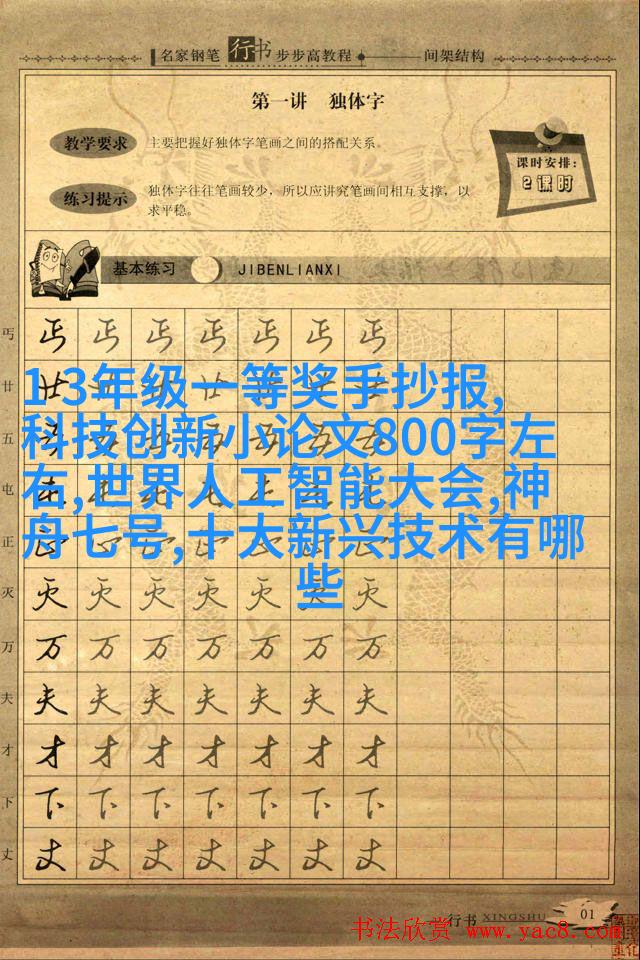 名家钢笔 行书 步步高教程 间架结构
第一讲 独体字
教学要求 主要把握好独体字笔画之间的搭配关系。
课时安排:
2课时
练习提示 独体字往往笔画较少，所以应讲究笔画间相互支撑，以
求平稳。
基本练习 JIBENLIANXI
丐 丐 丐 丐 丐 丐 丐 丐
廿 廿 廿 廿 廿 廿 廿 廿
1-3年级一等奖手抄报,
科技创新小论文800字左
右,世界人工智能大会,神
舟七号,十大新兴技术有哪
些
五
屯
正
灭 灭 灭 灭 灭 灭 灭 灭
万 万 万 万 万 万 万 万
夫 夫 夫 夫 夫 夫 夫 夫
才 才 才 才 才 才 才 才
下 下 下 下 下 下 下 下
丈 丈 丈 丈 丈 丈 丈 丈
行书 XINGSHU 01
书法欣赏 www.yac8.com